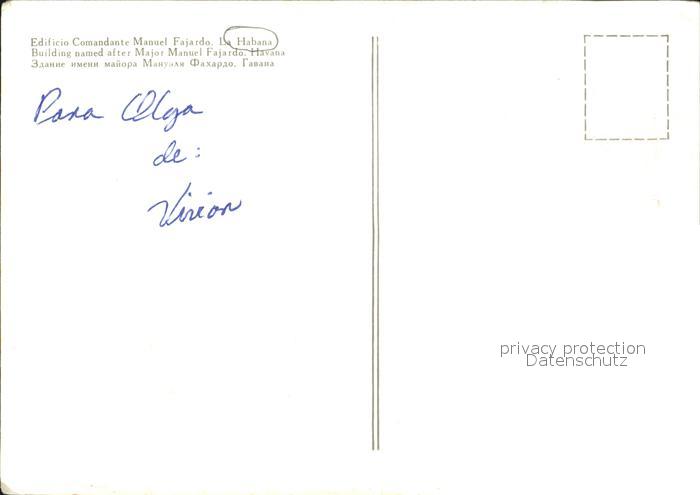 Edificio Comandante Manuel Fajardo. La Habana
Building named after Major Manuel Fajardo. Havana
Здание имени майора Мануэля Фахардо. Гавана
Para Olga
de:
Vivian
privacy protection
Datenschutz